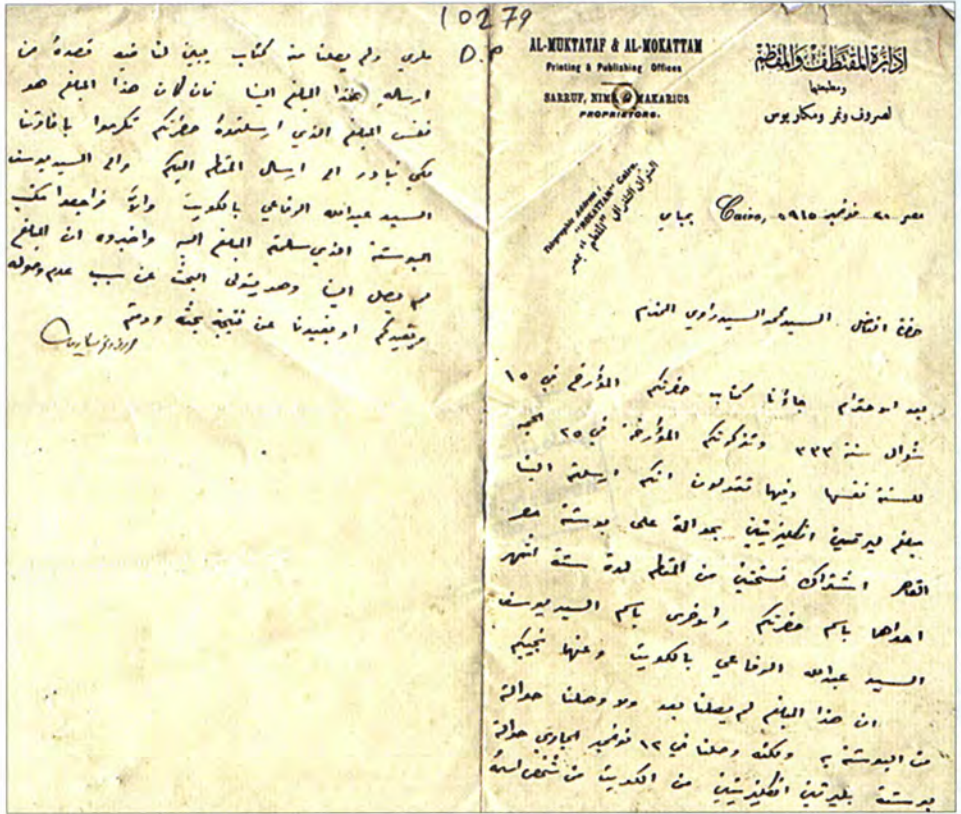 10279
D.P
AL-MUKTATAF & AL-MOKATTAM
Printing & Publishing Offices
SARRUF, NIMR & MAKARIUS
PROPRIETORS.
إدارة المقتطف والمقطم
ومطبعتها
لصروف ونمر ومكاريوس
Telegraphic Address:
"MOKATTAM" Cairo.
العنوان التلغرافي
"المقطم" بمصر
Cairo, مصر ٢٠ نوفمبر ١٩١٥ بمباي
حضرة الفاضل السيد محمد السيد راوي المحترم
بعد الاحترام جاءنا كتاب حضرتكم المؤرخ في ١٥
شوال سنة ٣٣٣ وتذكرتكم المؤرخة في ٢٥ الحجة
للسنة نفسها وفيها تقولون انكم ارسلتم الينا
مبلغ ليرتين انكليزيتين بحوالة على بوستة مصر
القاهرة اشتراك نسختين من المقطم لمدة ستة اشهر
احداها باسم حضرتكم والاخرى باسم السيد يوسف
السيد عبدالله الرفاعي بالكويت وعنها نجيبكم
ان هذا المبلغ لم يصلنا بعد ولا وصلنا حوالة
من البوستة به ولكنه وصلنا في ١٢ نوفمبر الجاري حوالة
بوستة بليرتين انكليزيتين من الكويت من شخص اسمه
ملري ولم يصلنا منه كتاب يبين لنا فيه قصده من
ارسال هذا المبلغ الينا فان كان هذا المبلغ هو
نفس المبلغ الذي ارسلتموه حضرتكم تكرموا بافادتنا
لكي نبادر الى ارسال المقطم اليكم والى السيد يوسف
السيد عبدالله الرفاعي بالكويت والا فراجعوا مكتب
البوستة الذي سلمتم المبلغ اليه واخبروه ان المبلغ
لم يصل الينا وهو يتولى البحث عن سبب عدم وصوله
ويفيدكم او يفيدنا عن نتيجة بحثه ودمتم